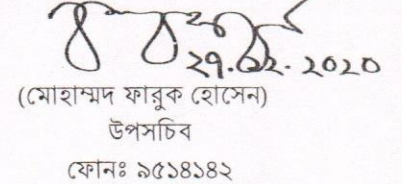 ২৭.০২.২০২০
(মোহাম্মদ ফারুক হোসেন)
উপসচিব
ফোনঃ ৯৫১৪১৪২